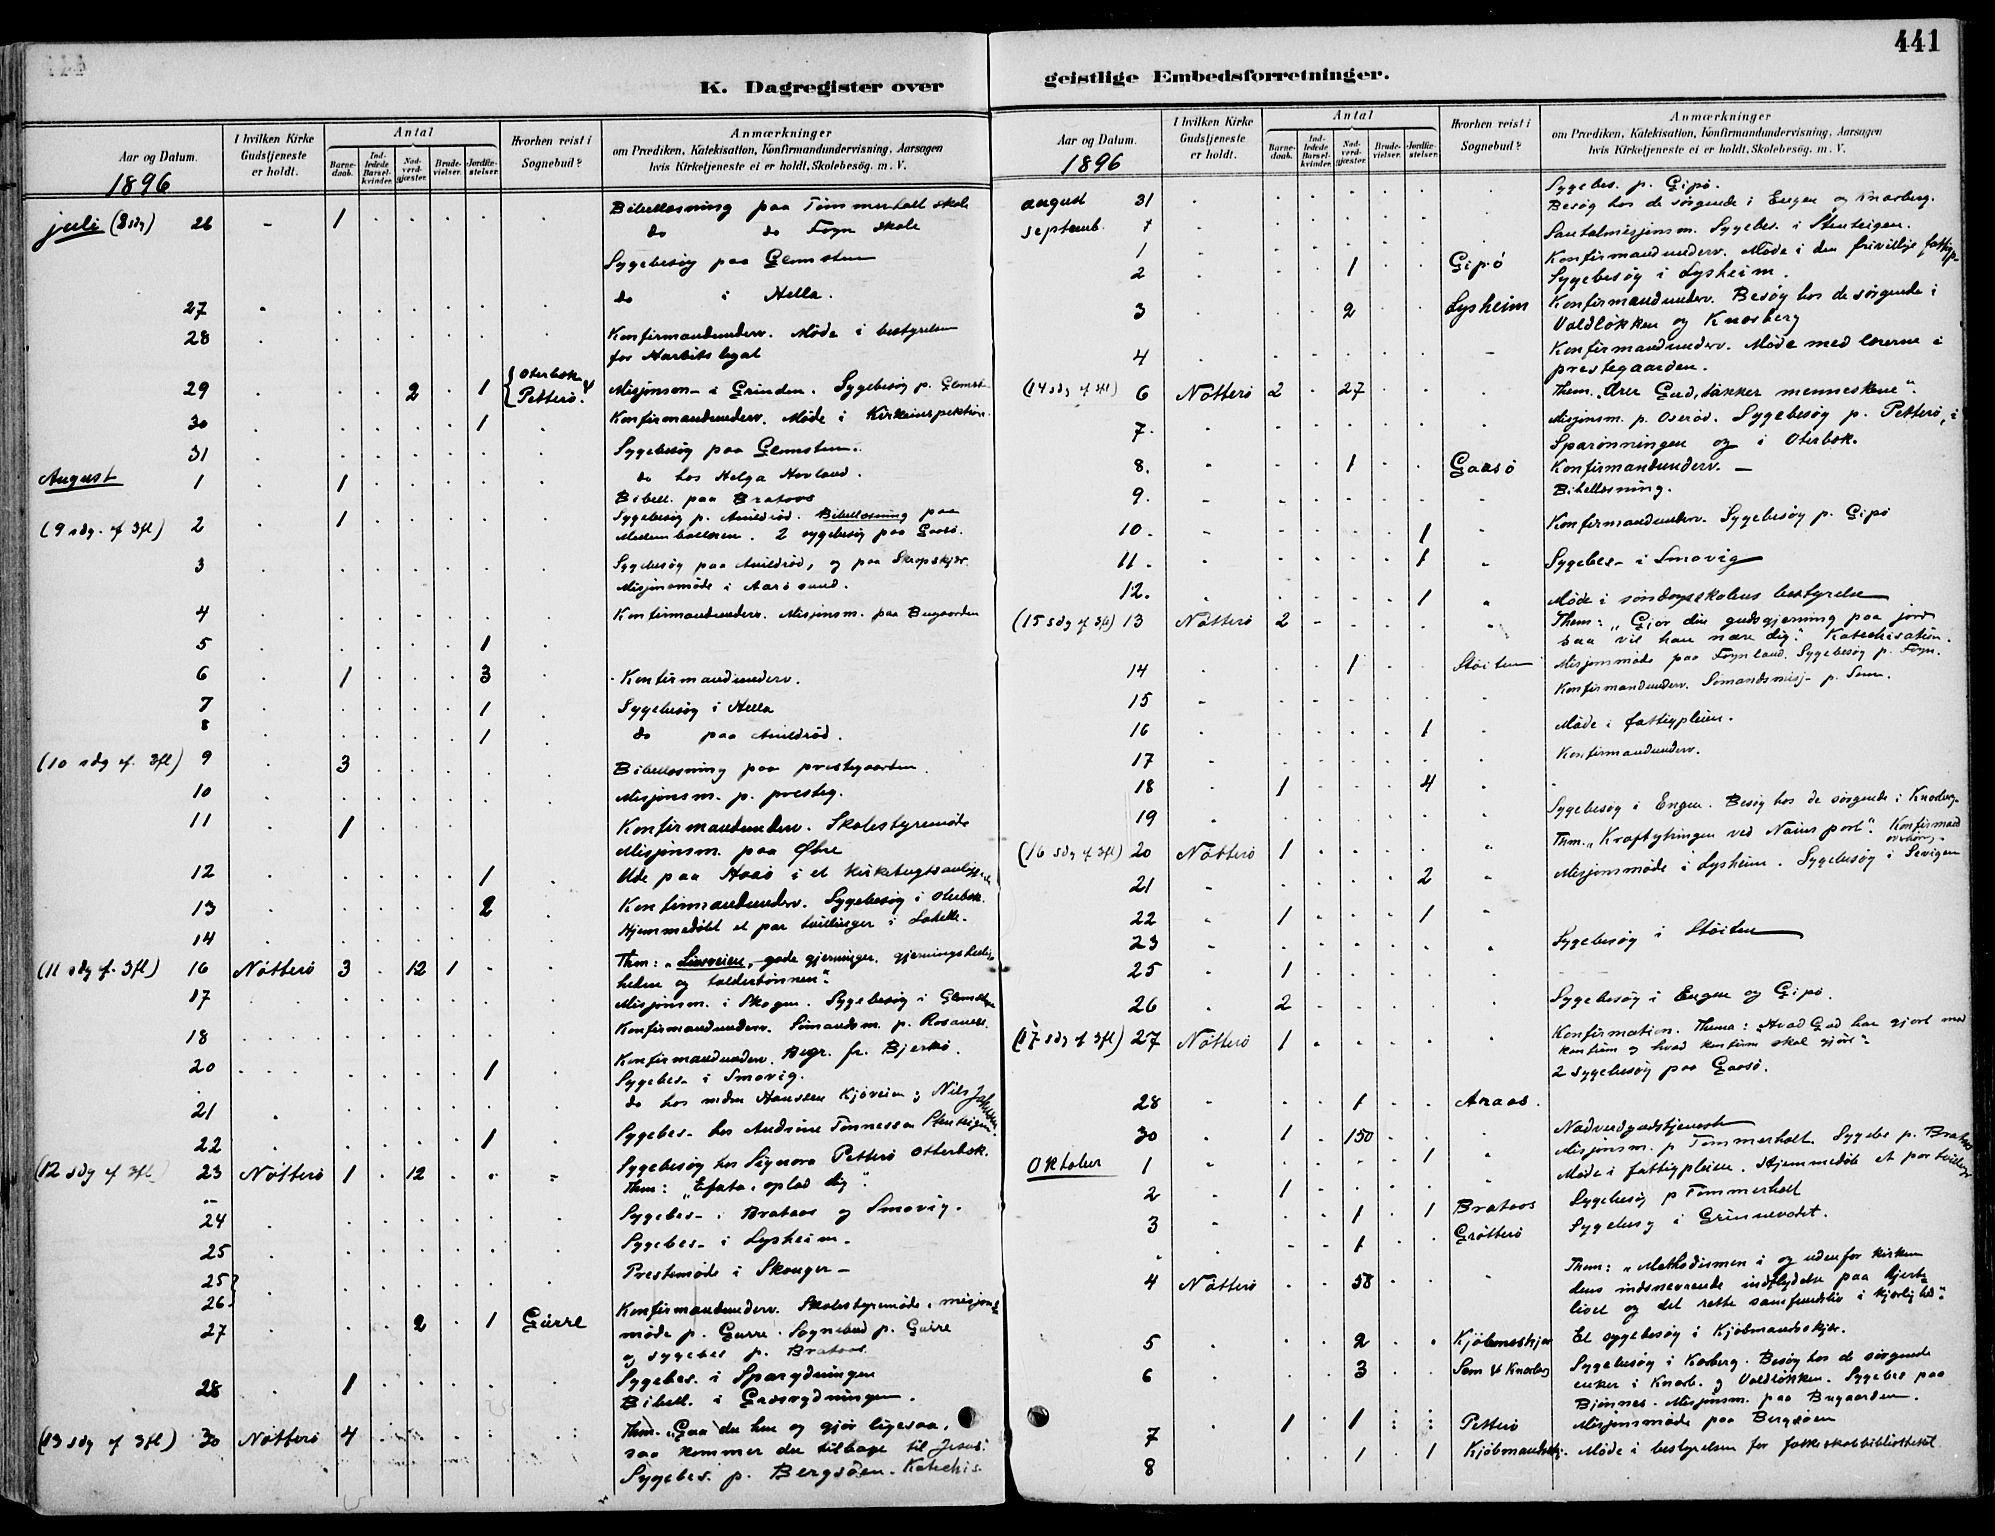 441
K. Dagregister over
geistlige Embedsforretninger.
Aar og Datum.
I hvilken Kirke Gudstjeneste er holdt.
Antal
Barnedaab.
Indledede Barselkvinder.
Nadverdgjæster.
Brudevielser.
Jordfæstelser.
Hvorhen reist i Sognebud?
Anmærkninger
om Prædiken, Katekisation, Konfirmandundervisning, Aarsagen
hvis Kirketjeneste ei er holdt. Skolebesög. m. V.
1896
juli (8 sdg) 26 - 1 Bibellæsning paa Tømmerholt skole
do do Føyn skole
Sygebesøg paa Glomsten
27 do i Hella.
28 Konfirmandunderv. Møde i bestyrelsen
for Aarbits legat
29 2 1 Oterbek & Petterö. Misjonsm. i Grinden. Sygebesøg p. Glomst
30 1 Konfirmandunderv. Møde i Kirkeinspektion.
31 Sygebesøg paa Glomsten.
August 1 1 do hos Helga Hovland.
Bibell. paa Brataas
(9 sdg. ef 3fl) 2 1 Sygebesøg p. Arildrød. Bibellæsning paa
2 sygebesøg paa Gaasø.
3 Sygebesøg paa Arildrød, og paa
Misjonsmøde i Aarøsund.
4 Konfirmandunderv. Misjonsm. paa Bugaarden
5 1
6 1 3 Konfirmandunderv.
7 1 Sygebesøg i Hella
8 1 do paa Arildrød.
(10 sdg ef. 3fl) 9 3 Bibellæsning paa prestegaarden.
10 Misjonsm. p. presteg.
11 1 Konfirmandunderv. Skolestyremøde
Misjonsm. paa Øbre
12 1 Ude paa Aaas i et
13 2 Konfirmandunderv. Sygebesøg i Oterbek.
14 Hjemmedøbt et par tvillinger i
(11 sdg ef. 3fl) 16 Nøtterö 3 12 1 Them: "Livsveien, gode gjerninger,
og tolderbønnen".
17 Misjonsm. i Skogen. Sygebesøg i Glomsten
18 Konfirmandunderv. Sømandsm. p. Rosanes.
20 1 Konfirmandunderv. Begr. fr. Bjerkø.
Sygebes. i Smovig.
21 do hos Hansen Kjøveien og Nils
22 1 Sygebes. hos Andrine Tønnessen Stenteigen.
Sygebesøg hos Signora Petterø Otterbek.
(12 sdg ef 3fl) 23 Nøtterö 1 12 Them: "Efata, oplad dig".
24 Sygebes. i Brataas og Smovig.
25 Sygebes. i Lysheim.
25 26 Prestemøde i Skouger
27 2 1 Gårre Konfirmandunderv. Skolestyremøde, misjons
møde p. Gårre. Sognebud p. Gårre
og sygebes p. Brataas.
28 1 Sygebes. i Sparydningen
Bibell. i
(13 sdg ef 3fl) 30 Nøtterö 4 Them. "Gaa du hen og gjør ligesaa,
saa kommer du tilbage til Jesus".
Sygebes. p. Bergsøen. Katechis.
Aar og Datum.
I hvilken Kirke Gudstjeneste er holdt.
Antal
Barnedaab.
Indledede Barselkvinder.
Nadverdgjæster.
Brudevielser.
Jordfæstelser.
Hvorhen reist i Sognebud?
Anmærkninger
om Prædiken, Katekisation, Konfirmandundervisning, Aarsagen
hvis Kirketjeneste ei er holdt. Skolebesög. m. V.
1896
Sygebes. p. Gipø.
august 31 Besøg hos de sørgende i Engen og Knarberg.
septemb. Santalmisjonsm. Sygebes. i Stenteigen.
1 Konfirmandunderv. Møde i den frivillige fattigp.
2 1 Gipö Sygebesøg i Lysheim.
3 2 Lysheim Konfirmandunderv. Besøg hos de sørgende i
Voldløkken og Knarberg
4 Konfirmandunderv. Møde med lærerne i
prestegaarden.
(14 sdg ef 3fl) 6 Nøtterö 2 27 Them. "Ærer Gud, takker menneskene".
7 Misjonsm. p. Oserød. Sygebesøg p. Petterø, i
og i Oterbek.
8. 1 Gaasö Konfirmandunderv.
9. Bibellæsning.
10. 1 Konfirmandunderv. Sygebesøg p. Gipø
11. 1 Sygebes. i Smovig
12. 1 Møde i søndagsskolens bestyrelse
(15 sdg ef 3fl) 13 Nøtterö 2 Them: "Gjør din gudsgjerning paa jord
saa vil han nære dig". Katechisation.
14 1 Støiten Misjonsmøde paa Føynland. Sygebesøg p. Føyn.
15 Konfirmandunderv. Sømandsmisj. p. Sem.
16 1 Møde i fattigpleien.
17 Konfirmandunderv.
18 1 4
19 Sygebesøg i Engen. Besøg hos de sørgende i Knarberg.
(16 sdg ef 3fl) 20 Nøtterö 1 Them. "Kraftytringen ved Nains port". Konfirmand
21 2 Misjonsmøde i Lysheim. Sygebesøg i
22 1 1
23 Sygebesøg i Støiten
25 1
26 2 Sygebesøg i Engen og Gipø.
(17 sdg ef 3fl) 27 Nøtterö 1 Konfirmation. Thema: "Hvad Gud har gjort mod
konfirm og hvad konfirm skal gjøre".
2 sygebesøg paa Gaasø.
28 1 Araas.
30 1 150 Nadverdgudstjeneste
Misjonsm. p. Tømmerholt. Sygebe p. Brataas
Oktober 1 1 Møde i fattigpleien. Hjemmedøbt et par tvillinger
2 1 Sygebesøg p Tømmerholt
3 1 1 Brataas Sygebesøg i
1 Grötterö
4 Nøtterö 58 Them: "Methodismen i og udenfor kirken
dens indsnevrende indflydelse paa hjerte
livet og det rette samfundsliv i kjærlighed".
5 2 Kjöbmskjær Et sygebesøg i Kjøbmandskjær.
6 3 Sem & Knarberg Sygebesøg i Knarberg. Besøg hos de sørgende
enker i Knarb. og Voldløkken. Sygebes paa
Bjønnes. Misjonsm. paa Bugaarden.
7 1 1 Petterö Misjonsmøde paa Bergsøen
8 1 1 Kjöbmandskj. Møde i bestyrelsen for folkeskolbibliotheket.